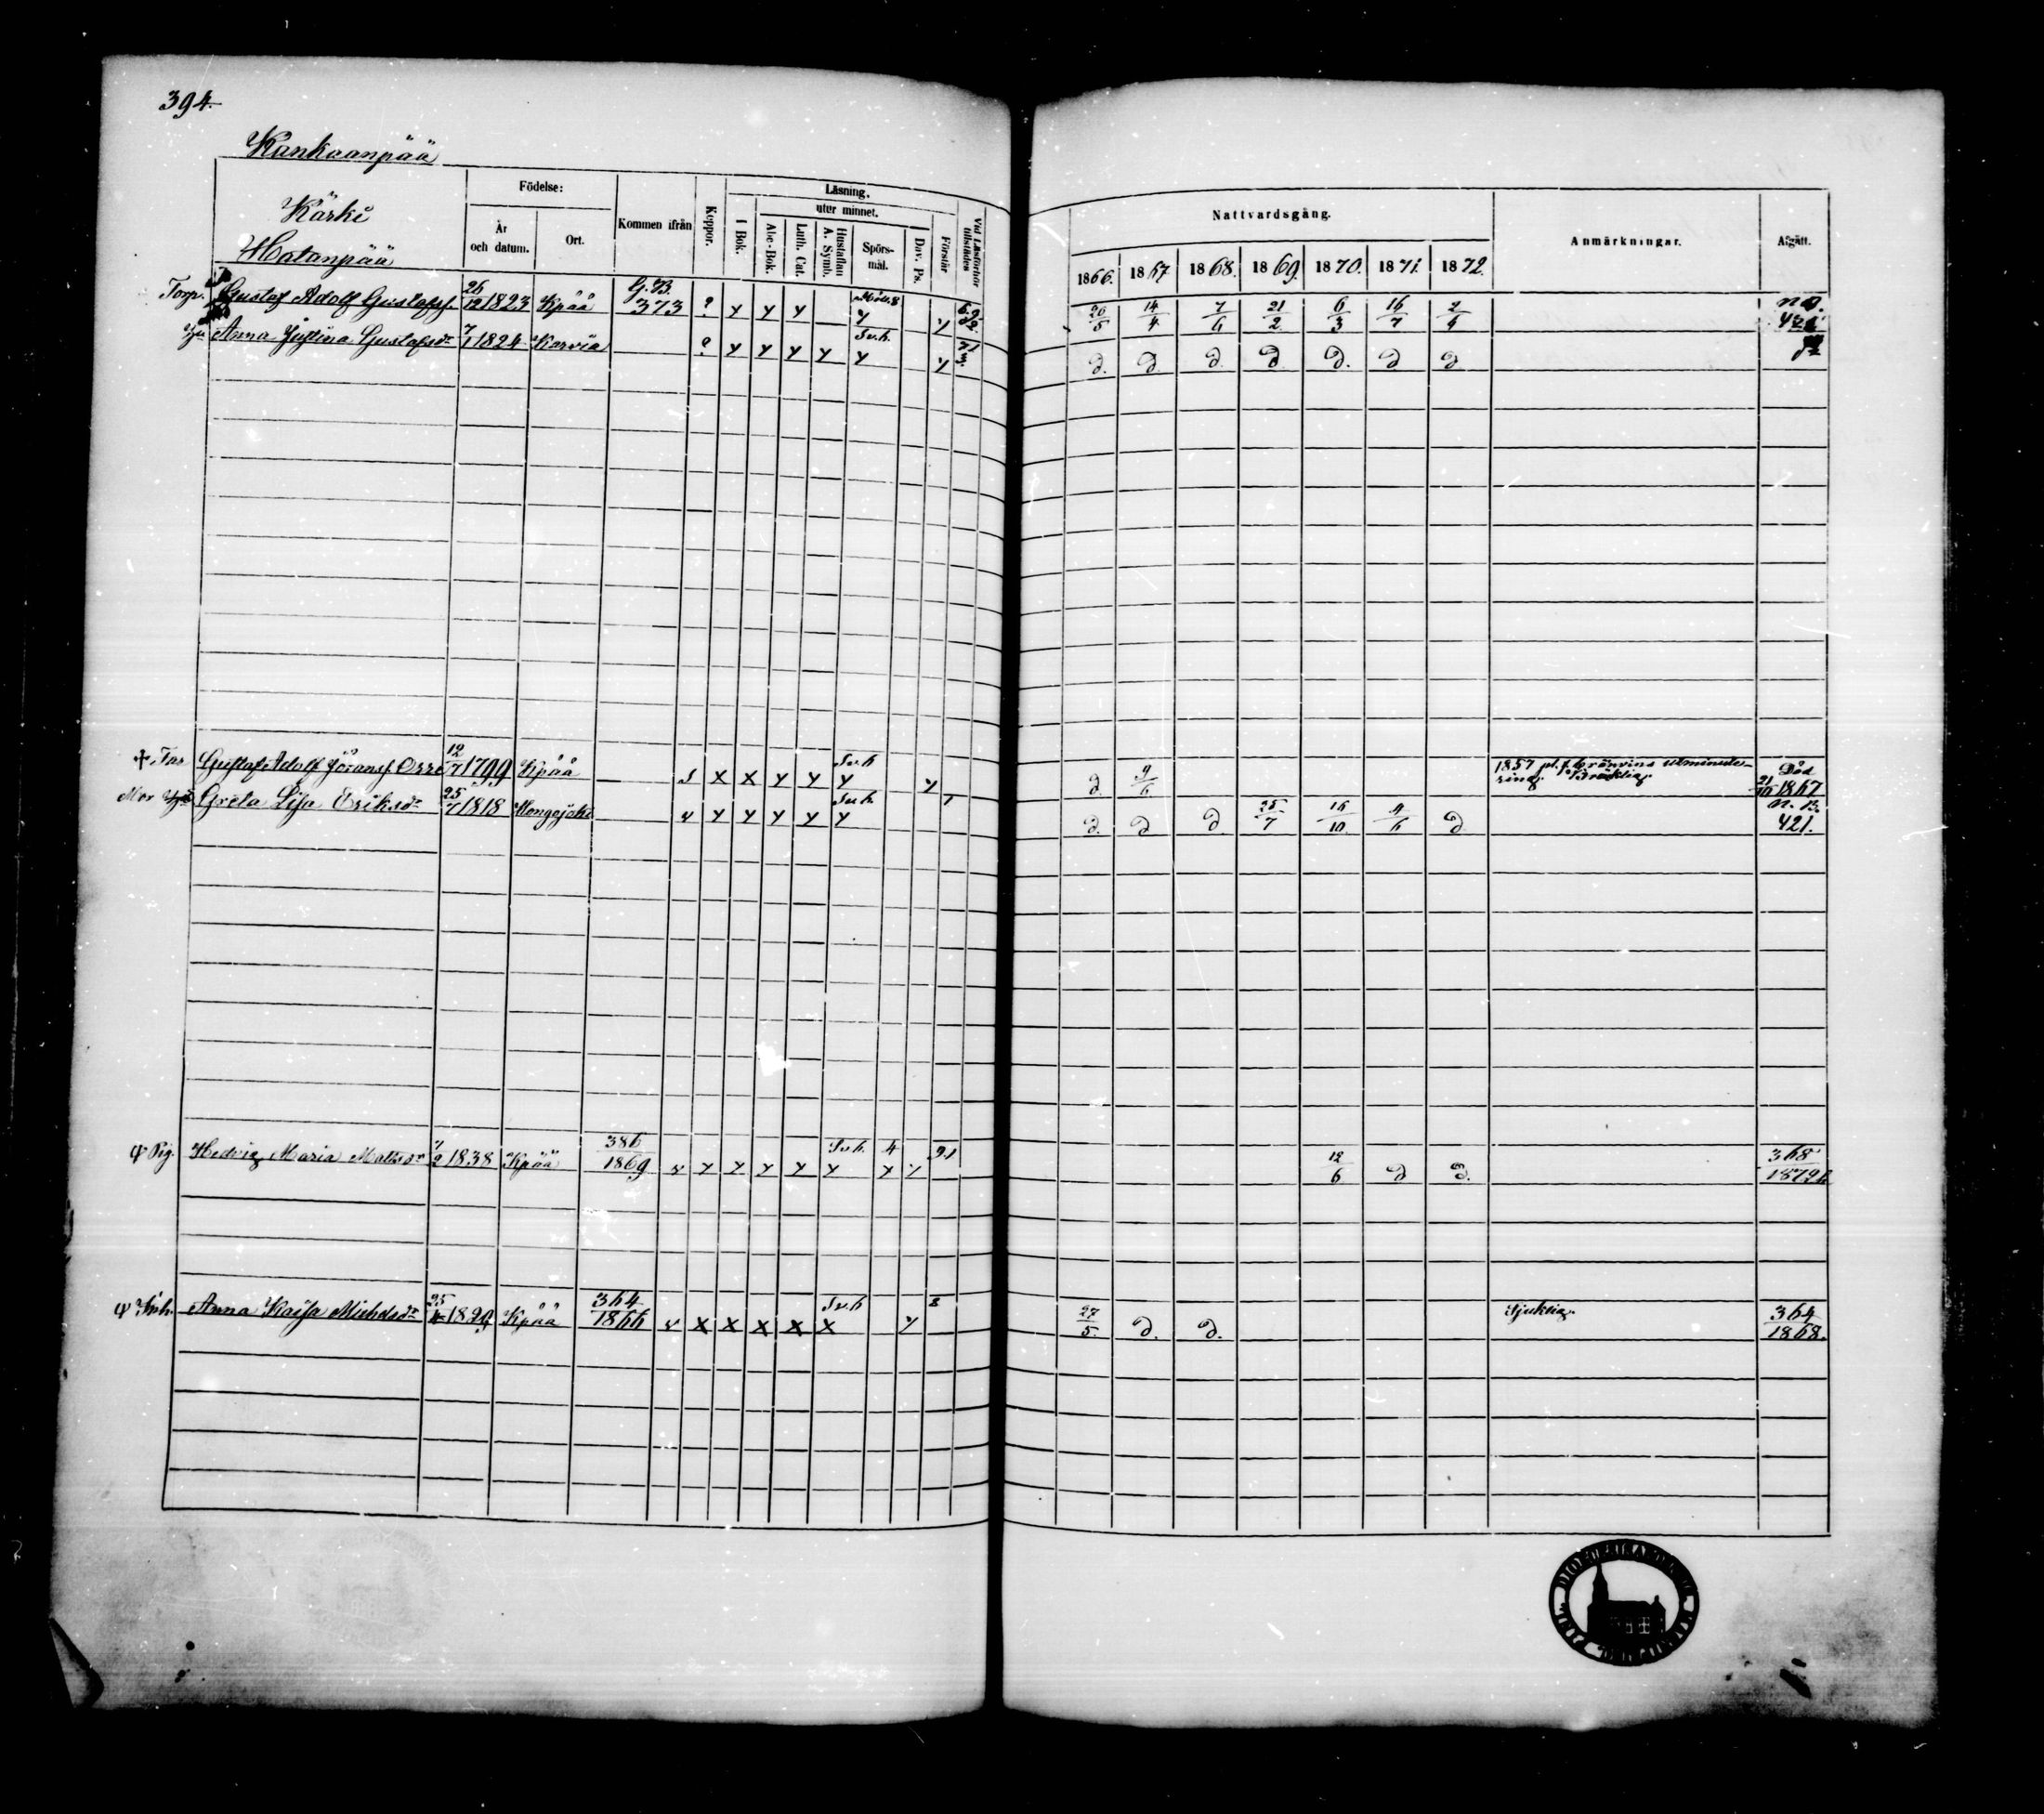 394.
Kankaanpää
Kärki
Hatanpää
Födelse:
År och datum.
Ort.
Kommen ifrån
Koppor.
Läsning.
I Bok.
utur minnet.
Abc-Bok.
Luth. Cat.
Hustaflan A. Symb.
Spörs-mål.
Dav. Ps.
Förstår
Vid Läsförhör tillstädes
Nattvardsgång.
1866. 1867 1868. 1869. 1870. 1871. 1872.
Anmärkningar.
Afgått.
Torp. Gustaf Adolf Gustafss. 26/12 1823 Kpää G.B. 373 ? y y y y y 20/5 14/4 7/6 21/2 6/3 16/7 2/4
Anna Justina Gustafsdr 7/1 1824 Karvia ? y y y y Svk. y y D. D D. D. D. D D
+ Far Gustaf Adolf Göranss. Orre 12/7 1799 Kpää s x x y y Svk y y D. 9/6 1857 pl. f. brännvins utminutering. Bräcklig. Död 21/10 1867
Mor Greta Lisa Eriksdr 25/7 1818 Hongojoki v y y y y Svk. y D. D D 25/7 16/10 4/6 D N. B. 421.
Pig. Hedvig Maria Matsdr 7/2 1838 Kpää 386/1869 v y y y y Svk. y 4 y y 12/6 D D. 368
Inh. Anna Kajsa Michelsdr 25/4 1829 Kpää 364/1866 v x x x x Svk x y 8 27/5 D. D. Sjuklig. 364/1868.